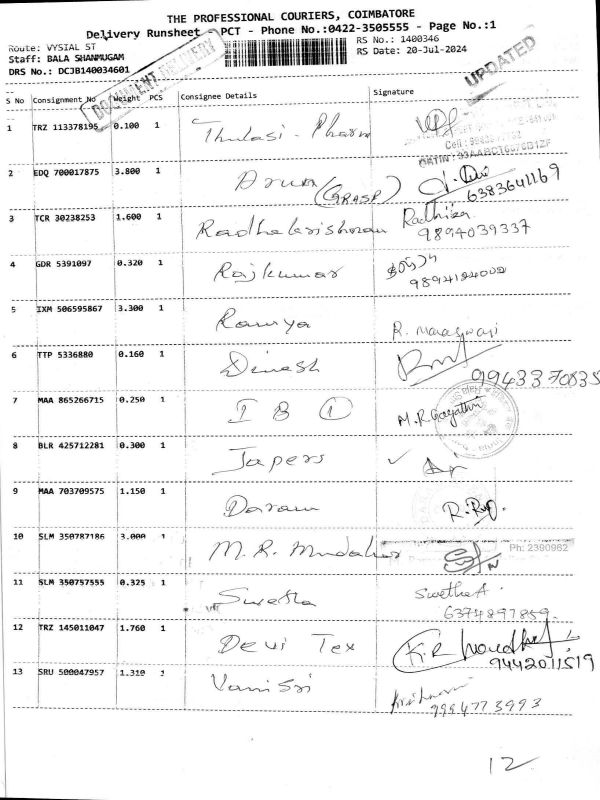 THE PROFESSIONAL COURIERS, COIMBATORE
Delivery Runsheet - PCT - Phone No.:0422-3505555 - Page No.:1
Route: VYSIAL ST RS No.: 1400346
Staff: BALA SHANMUGAM RS Date: 20-Jul-2024
DRS No.: DCJB140034601
DOCUMENT DELIVERY
UPDATED
S No Consignment No Weight PCS Consignee Details Signature
1 TRZ 113378195 0.100 1 Thulasi - Pharm
2 EDQ 700017875 3.800 1 Arun (GRASP) 6383641169
3 TCR 30238253 1.600 1 Radhakrishnan Radhika 9894039337
4 GDR 5391097 0.320 1 Rajkumar 9894124002
5 IXM 506595867 3.300 1 Ramya R.
6 TTP 5336880 0.160 1 Dinesh 9943370835
7 MAA 865266715 0.250 1 I B ① M.R Gayathri
8 BLR 425712281 0.300 1 Japers ✓
9 MAA 703709575 1.150 1
10 SLM 350787186 3.000 1 M. R. Ph: 2390962
11 SLM 350757555 0.325 1 Swetha Swetha A. 6374897859
12 TRZ 145011047 1.760 1 Devi Tex K.R 9442011519
13 SRU 500047957 1.310 1 Vani Sri 9994773993
12